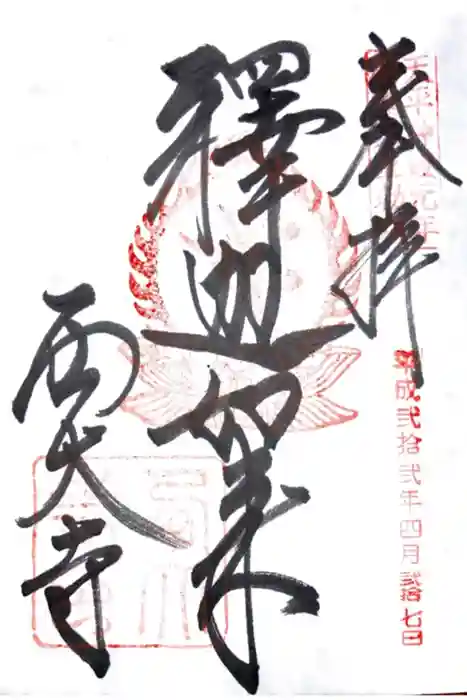 奉拝
平成弐拾弐年四月弐拾七日
釋迦如来
西大寺